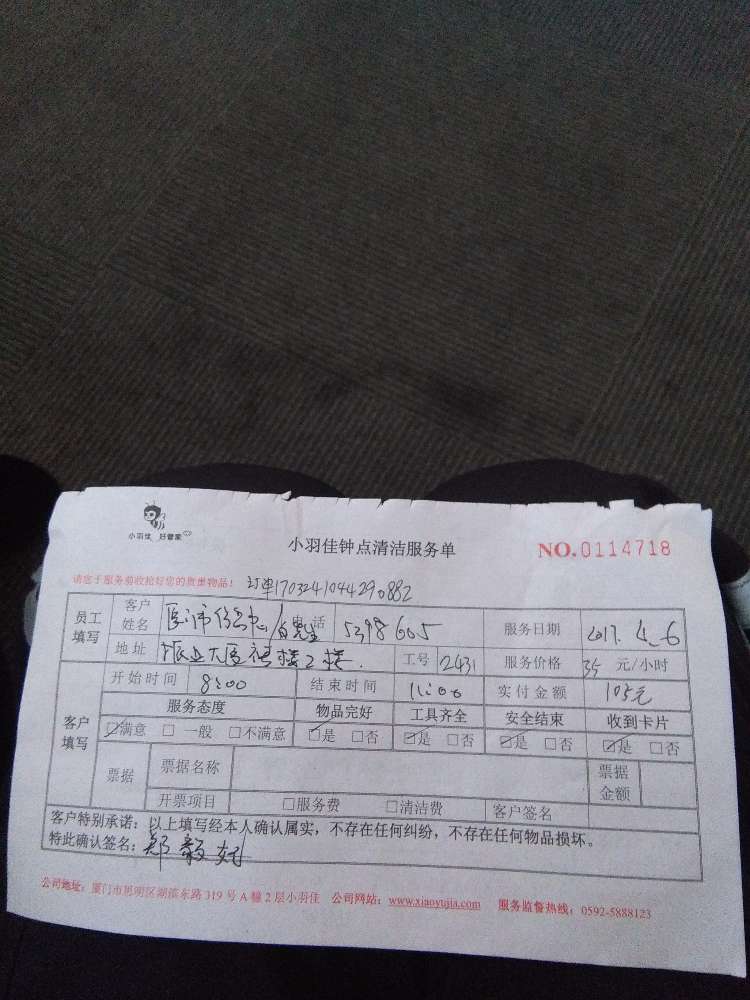 小羽佳 好管家
小羽佳钟点清洁服务单
NO.0114718
请您于服务前收拾好您的贵重物品! 订单1703241044290882
员工填写 客户姓名 厦门市信息中心/白先生 电话 5398605 服务日期 2017.4.6
地址 振业大厦裙楼2楼. 工号 2431 服务价格 35 元/小时
客户填写 开始时间 8:00 结束时间 11:00 实付金额 105元
服务态度 物品完好 工具齐全 安全结束 收到卡片
☑满意 □一般 □不满意 ☑是 □否 ☑是 □否 ☑是 □否 ☑是 □否
票据 票据名称 票据金额
开票项目 □服务费 □清洁费 客户签名
客户特别承诺:以上填写经本人确认属实,不存在任何纠纷,不存在任何物品损坏。
特此确认签名:郑毅
公司地址:厦门市思明区湖滨东路319号A幢2层小羽佳 公司网站:www.xiaoyujia.com 服务监督热线:0592-5888123